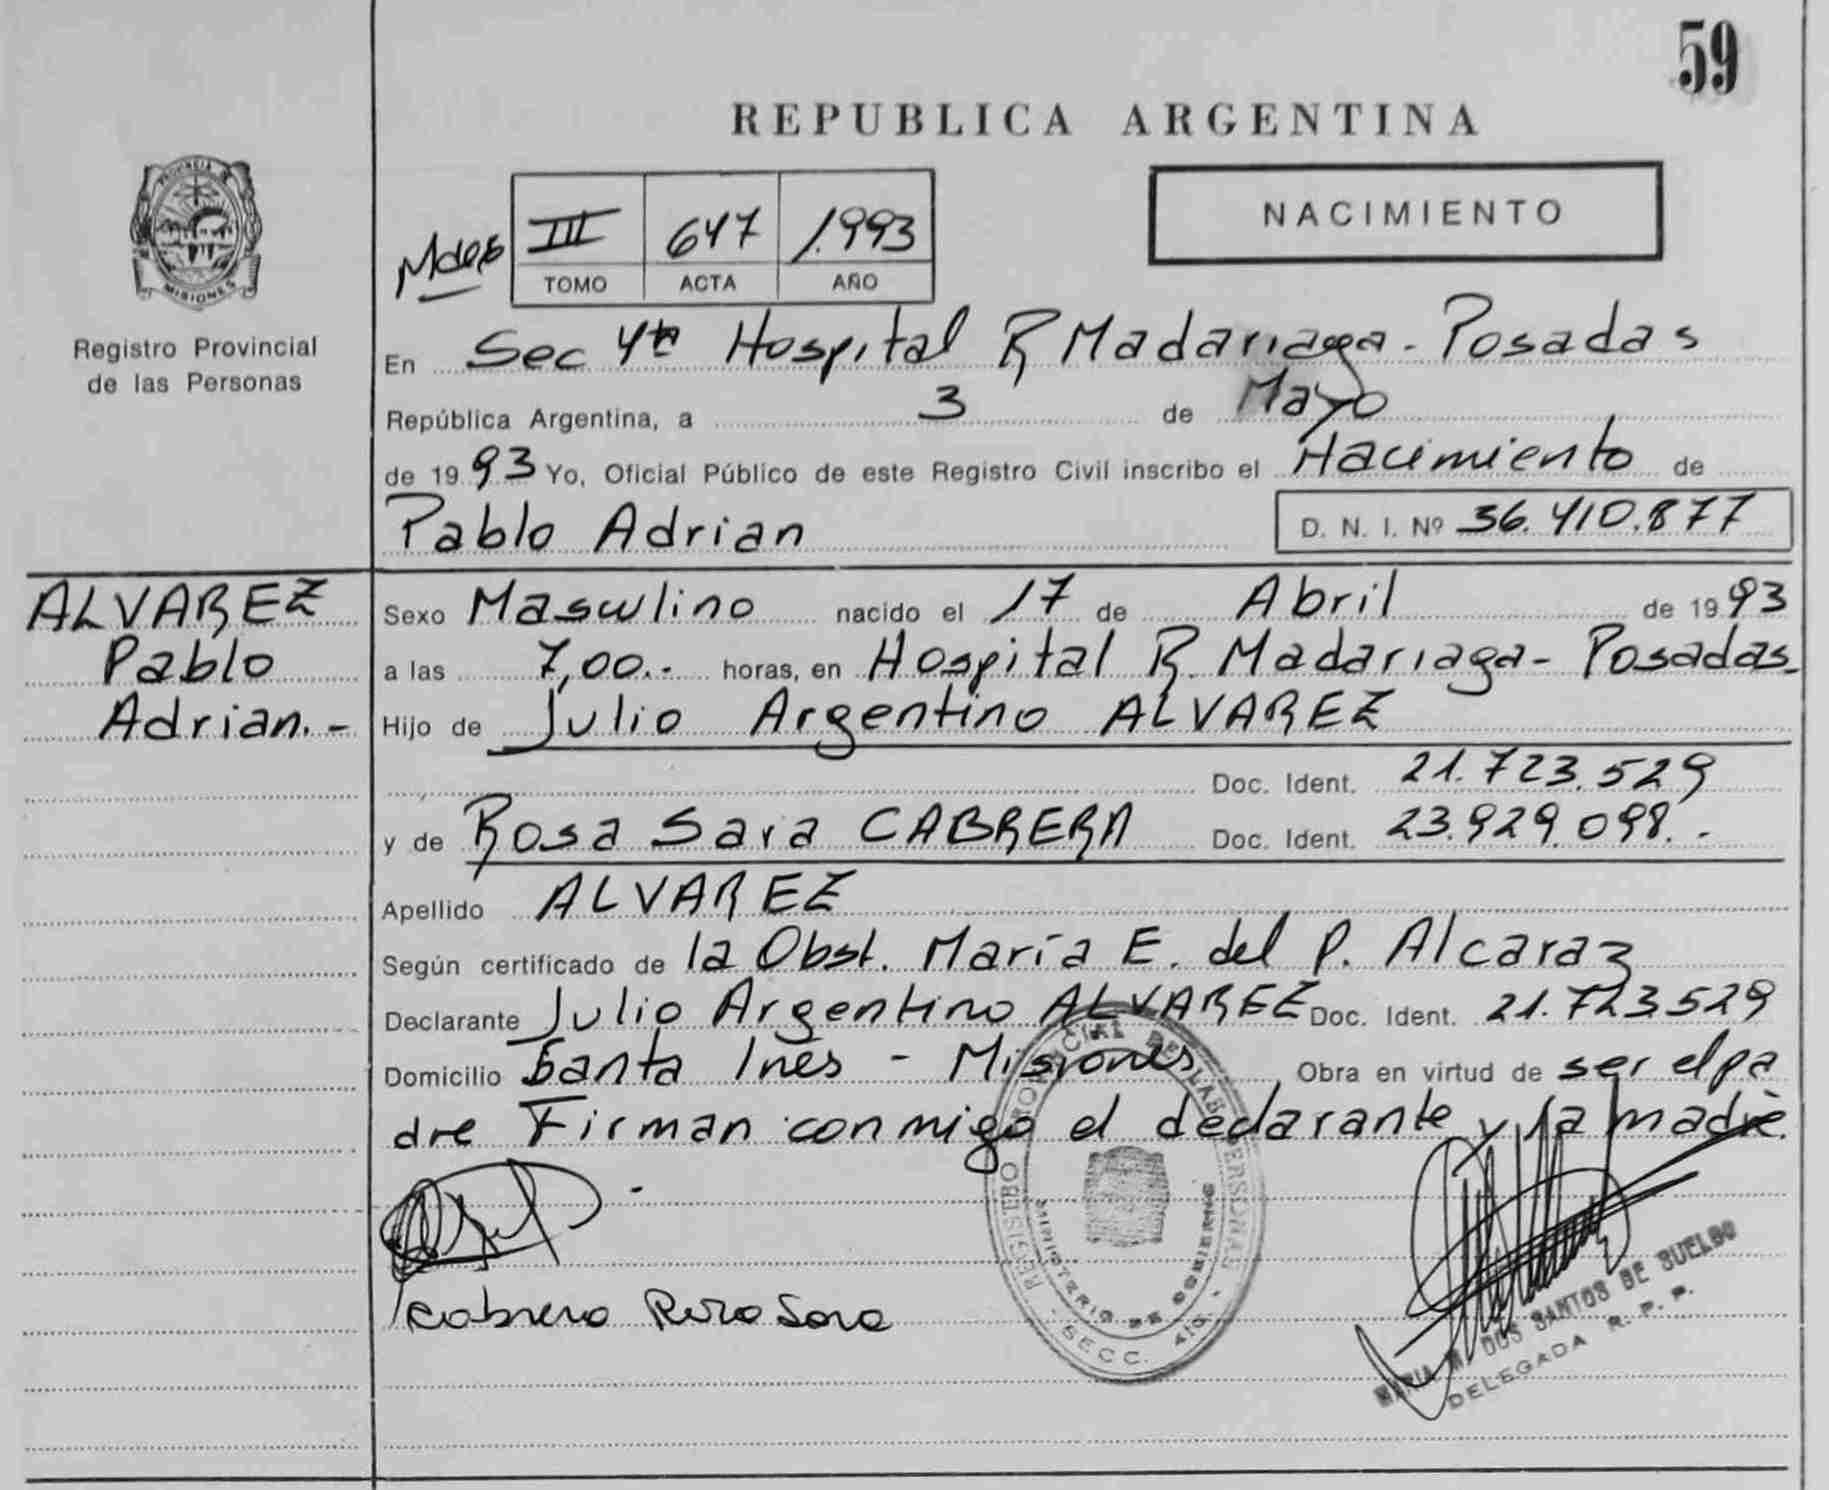 59
REPUBLICA ARGENTINA
PROVINCIA D
MISIONES
Registro Provincial
de las Personas
III 647 1.993
TOMO ACTA AÑO
NACIMIENTO
En Sec 4ta Hospital R Madariaga - Posadas
República Argentina, a 3 de Mayo
de 1993 Yo, Oficial Público de este Registro Civil inscribo el Nacimiento de
Pablo Adrian D. N. I. Nº 36.410.877
ALVAREZ
Pablo
Adrian.-
Sexo Masculino nacido el 17 de Abril de 1993
a las 7,00.- horas, en Hospital R. Madariaga - Posadas.
Hijo de Julio Argentino ALVAREZ
Doc. Ident. 21.723.529
y de Rosa Sara CABRERA Doc. Ident. 23.929.098.-
Apellido ALVAREZ
Según certificado de la Obst. María E. del P. Alcaraz
Declarante Julio Argentino ALVAREZ Doc. Ident. 21.723.529
Domicilio Santa Ines - Misiones, Obra en virtud de ser el pa
dre Firman conmigo el declarante y la madre.
Cabrera Rosa Sara
REGISTRO PROVINCIAL DE LAS PERSONAS
MINISTERIO DE GOBIERNO
SECC. 4ta.
MARIA M. DOS SANTOS DE SUELDO
DELEGADA R. P. P.